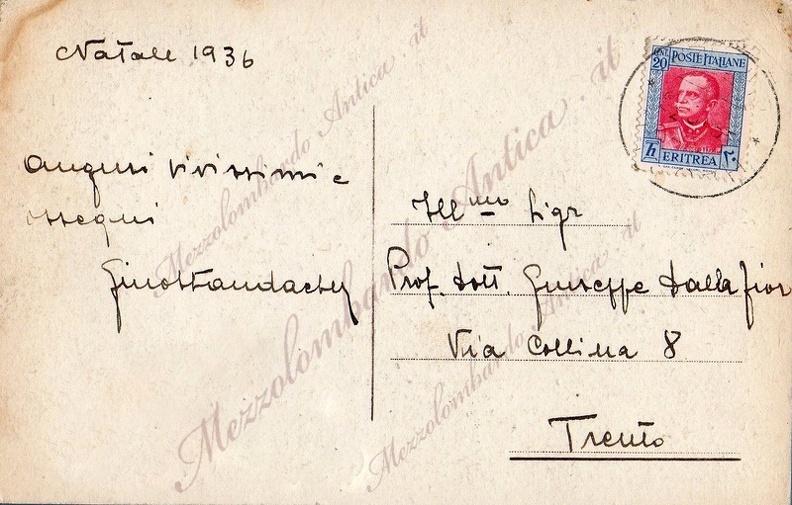 Natale 1936
Auguri vivissimi e
ossequi
Ill.mo Sigr
Prof. Dott. Giuseppe Dalla Fior
Via Collina 8
Trento
CENT. 20 POSTE ITALIANE
ERITREA ٢٠
Mezzolombardo Antica . it
Mezzolombardo Antica . it
Mezzolombardo Antica . it